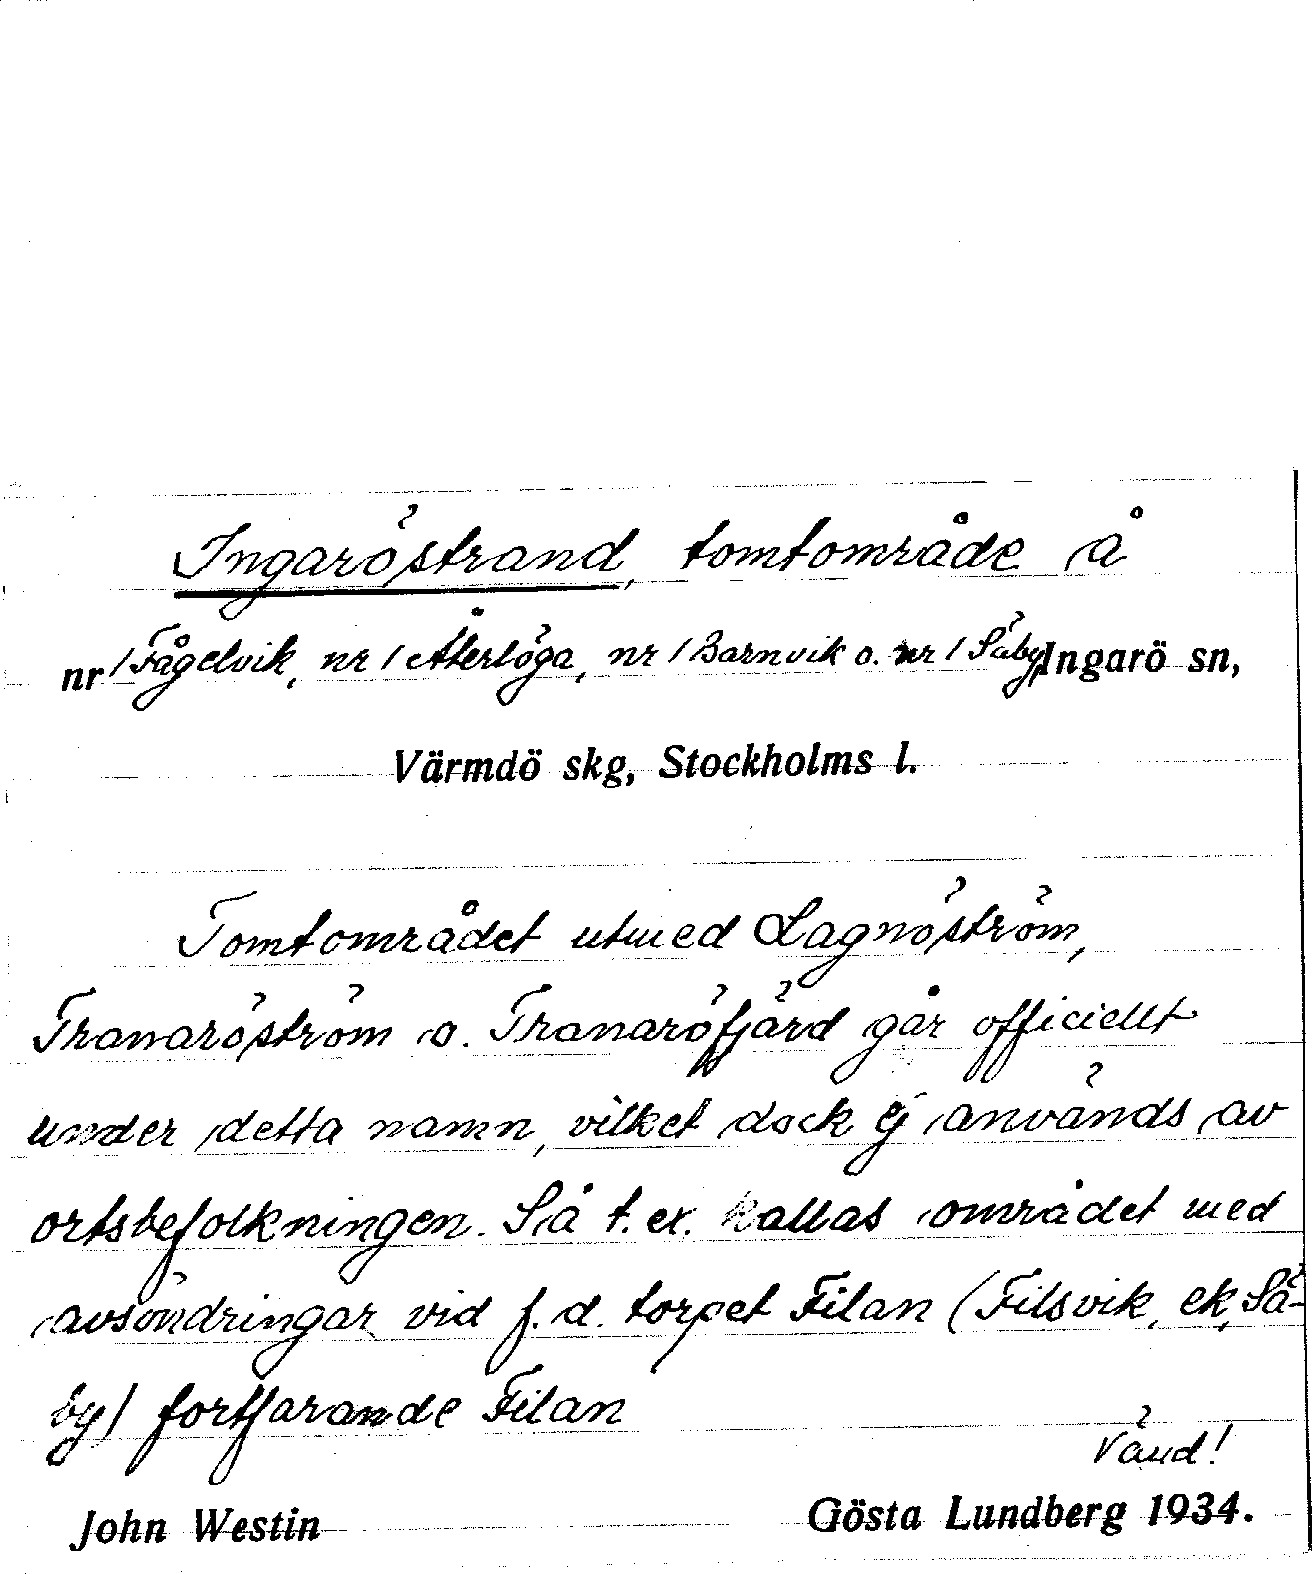 Ingaröstrand, tomtområde å
nr 1 Fågelvik, nr 1 Återlöga, nr 1 Barnvik o. nr 1 Säby Ingarö sn,
Värmdö skg, Stockholms l.
Tomtområdet utmed Lagnöström,
Tranaröström o. Tranaröfjärd går officiellt
under detta namn, vilket dock ej används av
ortsbefolkningen. Så t. ex. kallas området med
avsöndringar vid f. d. torpet Filan (Filsvik, ek, Sä-
by) fortfarande Filan
Vänd!
John Westin Gösta Lundberg 1934.